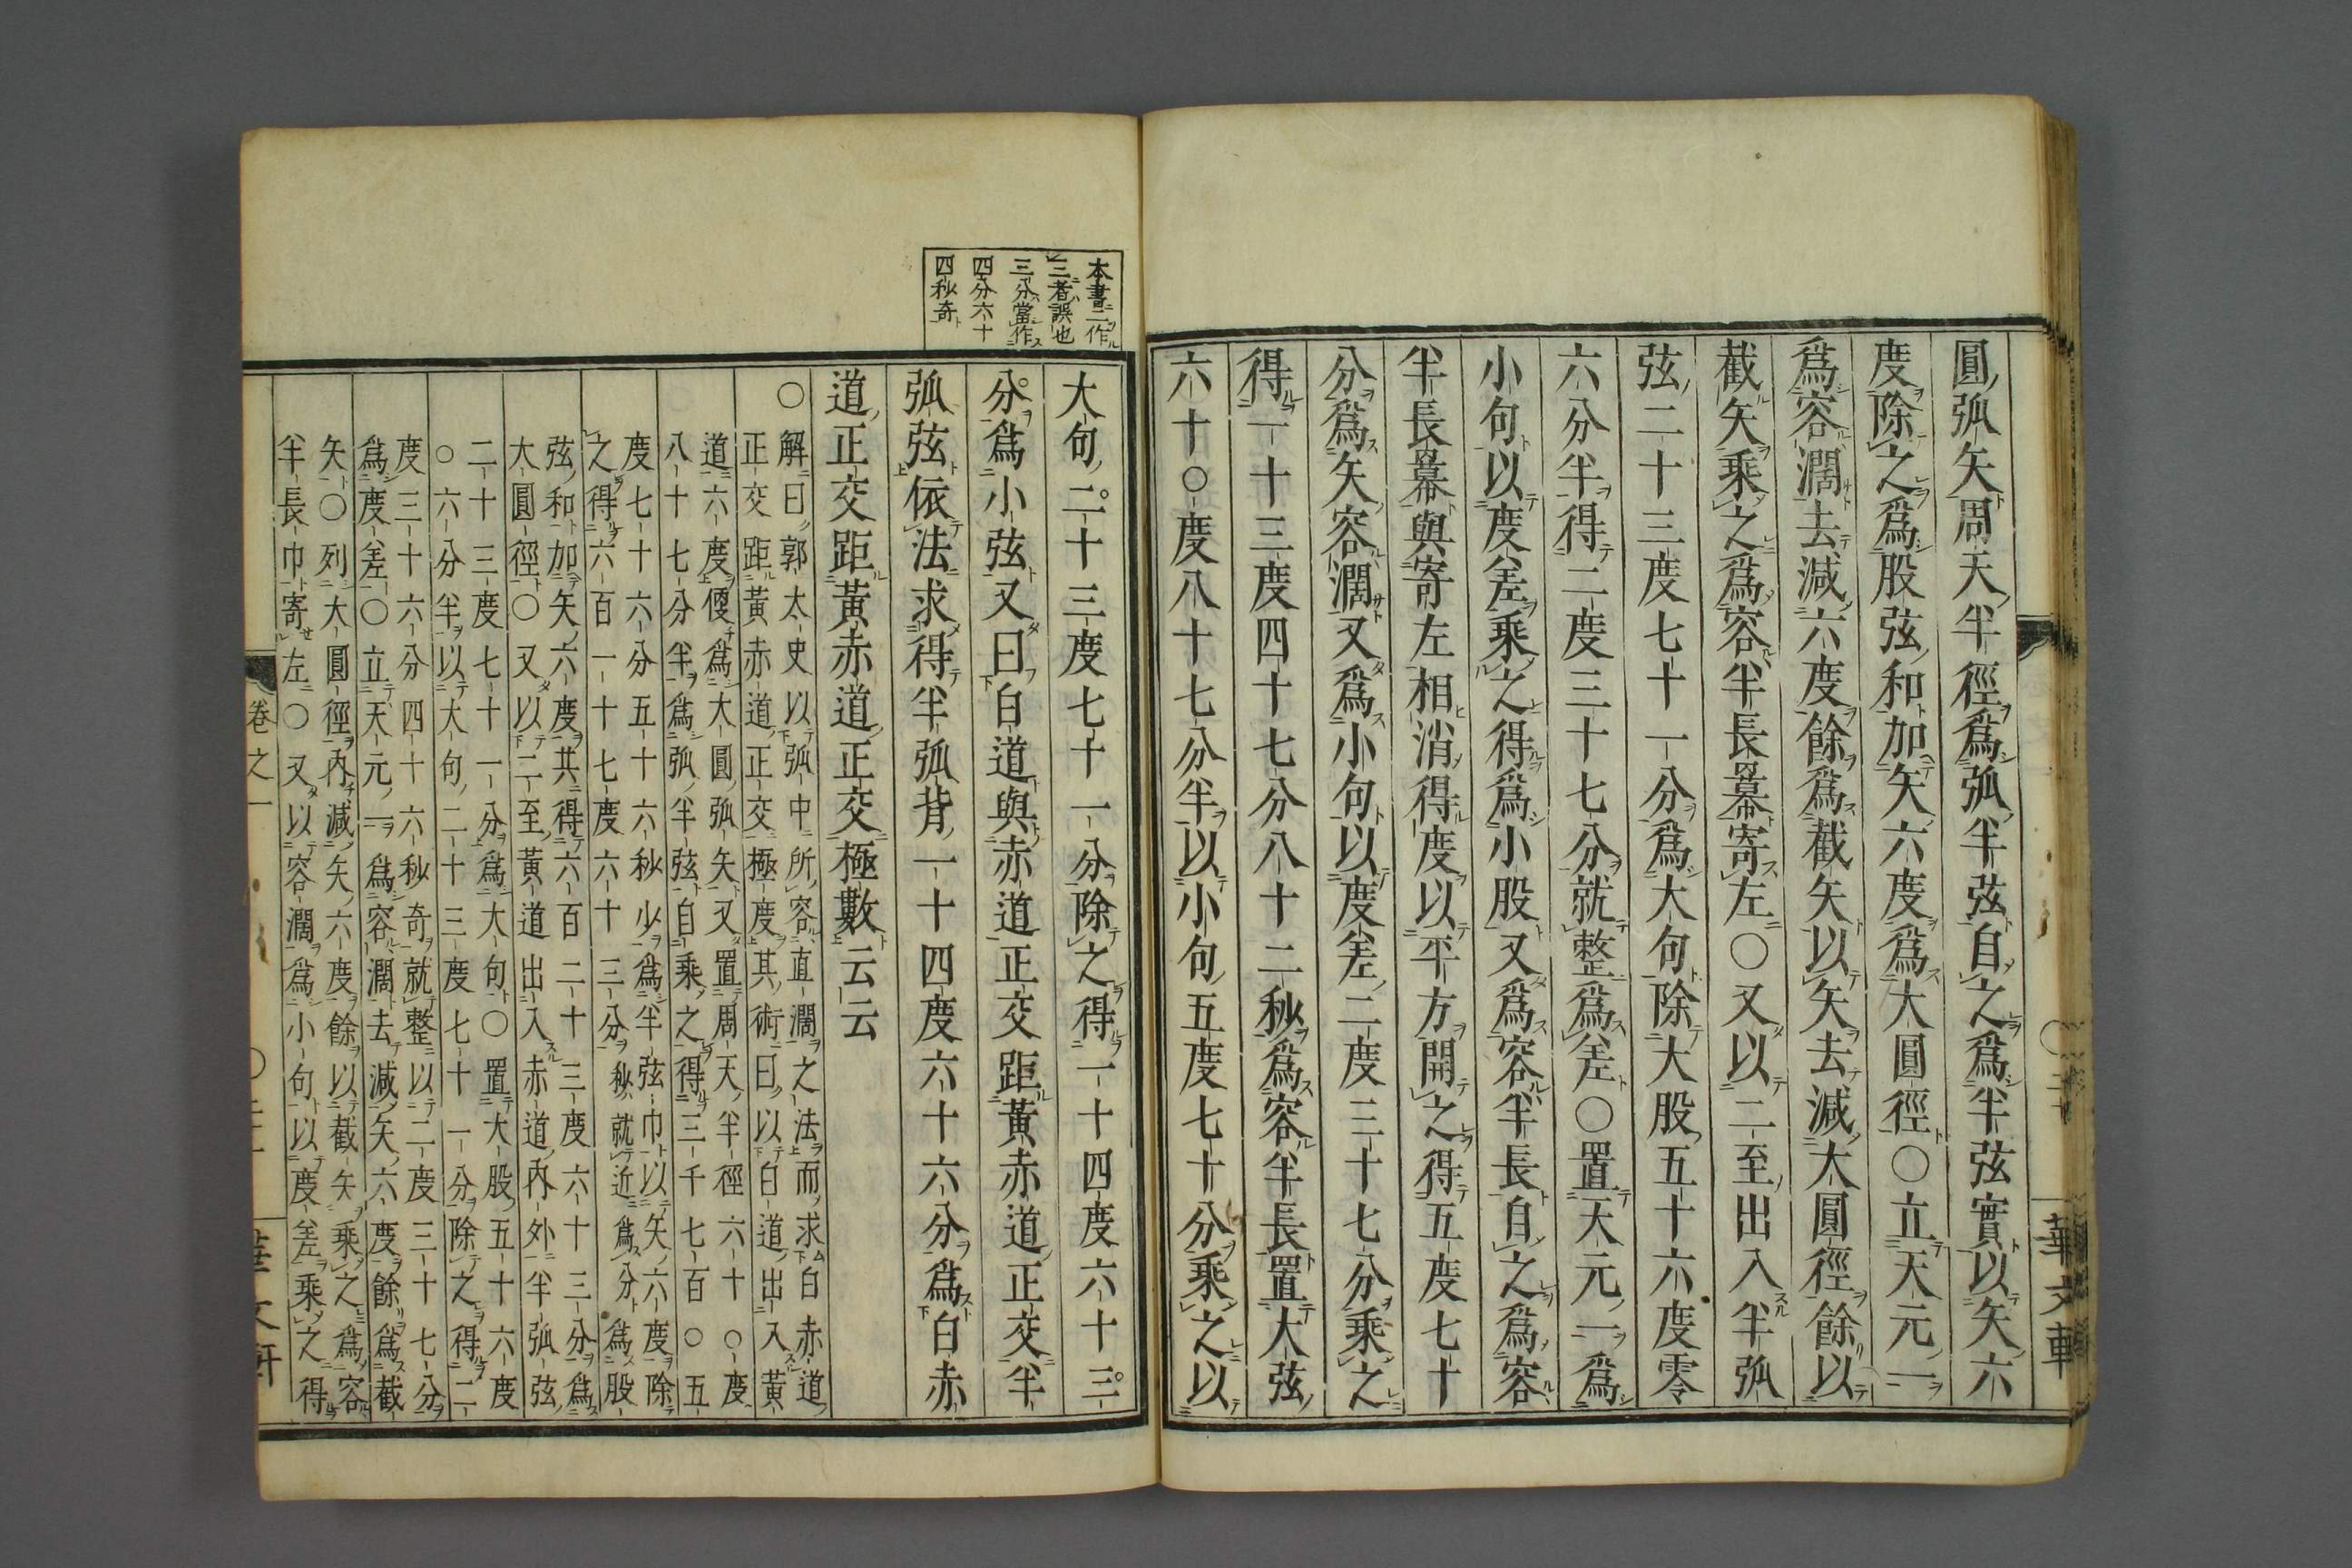 圓弧矢周天半徑爲弧半弦自之爲半弦實以矢六
度除之爲股弦和加矢六度爲大圓徑○立天元一
爲容濶去減六度餘爲截矢以矢去減大圓徑餘以
截矢乘之爲容半長冪寄左○又以二至出入半弧
弦二十三度七十一分爲大句除大股五十六度零
六分半得二度三十七分就整爲差○置天元一爲
小句以度差乘之得爲小股又爲容半長自之爲容
半長冪與寄左相消得度以平方開之得五度七十
分爲矢容濶又爲小句以度差二度三十七分乘之
得一十三度四十七分八十二秋爲容半長置大弦
六十○度八十七分半以小句五度七十分乘之以
華文軒
本書二作
三者誤也
三分當作
四分六十
四秋奇
大句二十三度七十一分除之得一十四度六十三
分爲小弦又曰白道與赤道正交距黃赤道正交半
弧弦依法求得半弧背一十四度六十六分爲白赤
道正交距黃赤道正交極數云云
○解曰郭太史以弧中所容直濶之法而求白赤道
正交距黃赤道正交極度其術曰以白道出入黃
道六度便爲大圓弧矢又置周天半徑六十○度
八十七分半爲弧半弦自乘之得三千七百○五
度七十六分五十六秋少爲半弦巾以矢六度除
之得六百一十七度六十三分秋就近爲分爲股
弦和加矢六度共得六百二十三度六十三分爲
大圓徑○又以二至黃道出入赤道內外半弧弦
二十三度七十一分爲大句○置大股五十六度
○六分半以大句二十三度七十一分除之得二
度三十六分四十六秋奇就整以二度三十七分
爲度差○立天元一爲容濶去減矢六度餘爲截
矢○列大圓徑內減矢六度餘以截矢乘之爲容
半長巾寄左○又以容濶爲小句以度差乘之得
卷之一